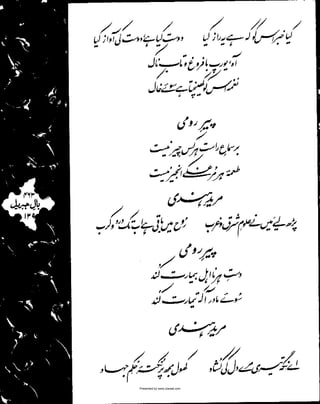 کیا خبر اس کو کہ ہے یہ راز کیا دوست کیا ہے، دوست کی آواز کیا
آہ، یورپ با فروغ و تاب ناک
نغمہ اس کو کھینچتا ہے سوئے خاک
پیر رومی
بر سماع راست ہر کس چیر نیست
طعمۂ ہر مرغکے انجیر نیست
مرید ہندی
پڑھ لیے میں نے علوم شرق و غرب روح میں باقی ہے اب تک درد و کرب
پیر رومی
دست ہر نا اہل بیمارت کند
سوئے مادر آ کہ تیمارت کند
مرید ہندی
اے نگہ تیری مرے دل کی کشاد کھول مجھ پر نکتۂ حکم جہاد
بال جبریل